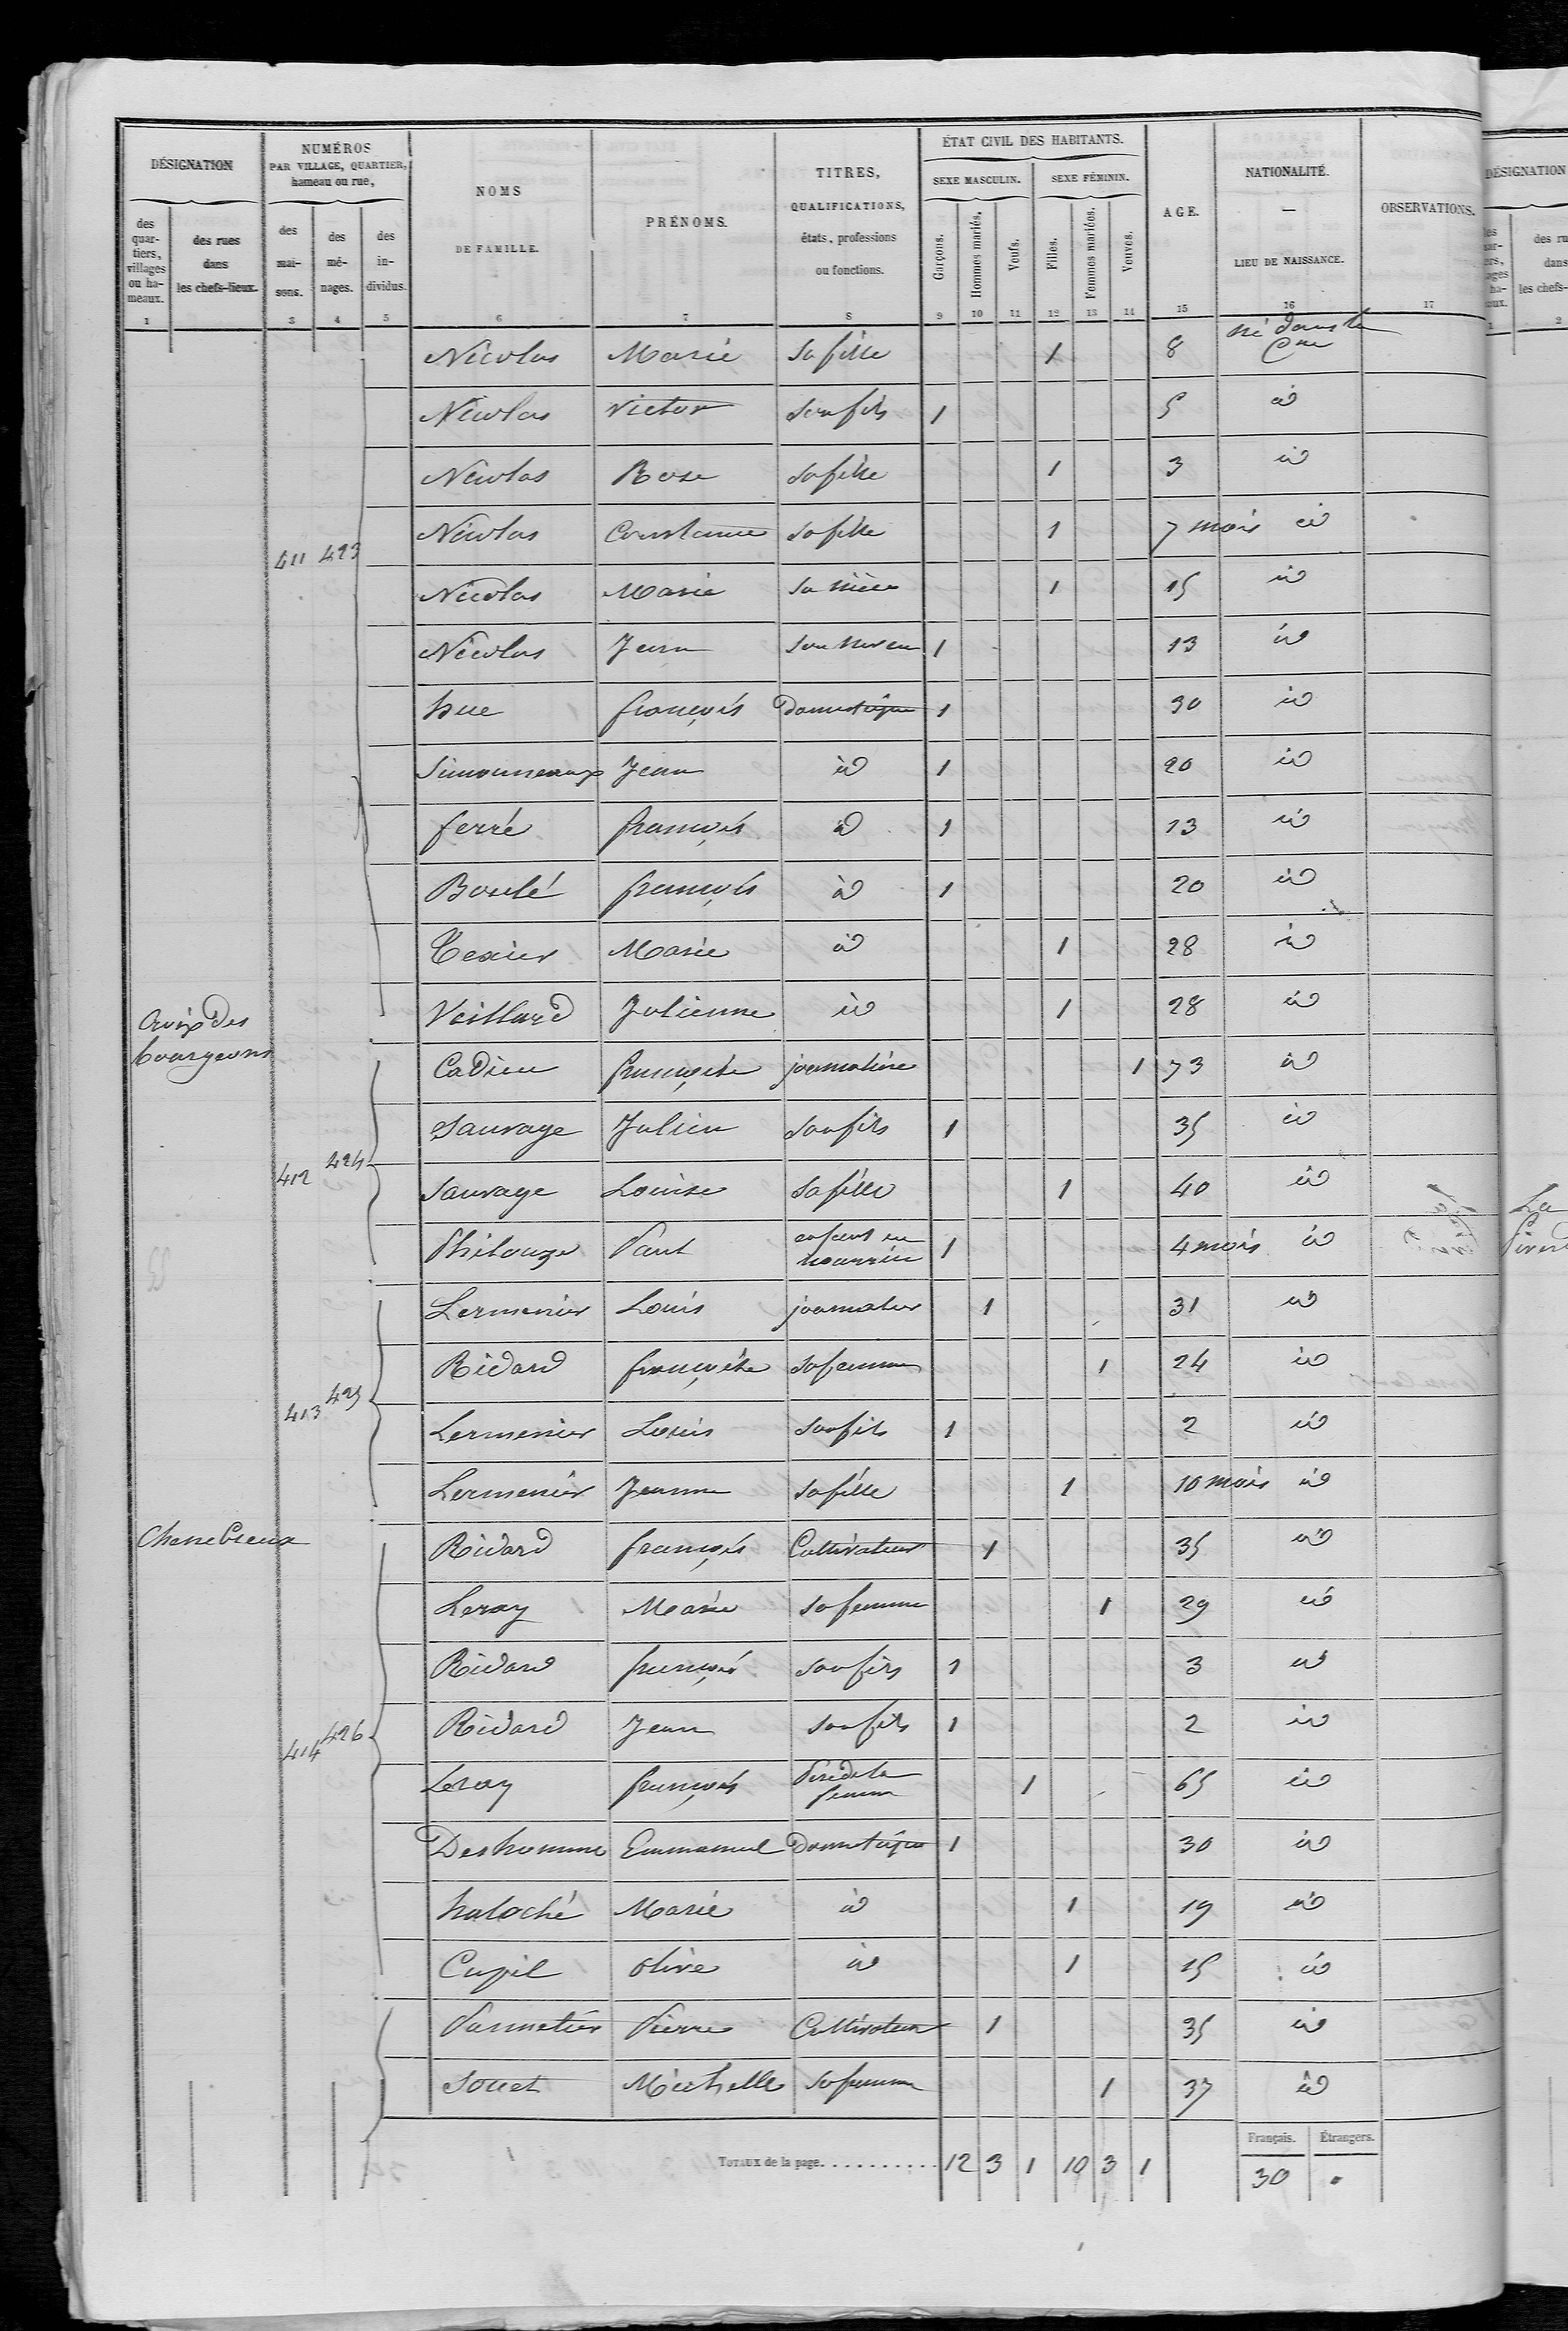 DÉSIGNATION
NUMÉROS
PAR VILLAGE, QUARTIER,
hameau ou rue,
NOMS
DE FAMILLE.
PRÉNOMS.
TITRES,
QUALIFICATIONS,
états, professions
ou fonctions.
ÉTAT CIVIL DES HABITANTS.
SEXE MASCULIN. SEXE FÉMININ.
AGE.
NATIONALITÉ.
—
LIEU DE NAISSANCE.
OBSERVATIONS.
des quar-tiers, villages ou ha-meaux.
des rues dans les chefs-lieux.
des mai-sons.
des mé-nages.
des in-dividus.
Garçons. Hommes mariés. Veufs. Filles. Femmes mariées. Veuves.
1 3 4 5 6 7 8 9 10 11 12 13 14 15 16 17
Nicolas Marie sa fille 1 8 né dans la Cne
Nicolas Victor son fils 1 5 id
Nicolas Rose sa fille 1 3 id
411 423 Nicolas Constance sa fille 1 7 mois id
Nicolas Marie sa nièce 1 15 id
Nicolas Jean son neveu 1 13 id
hue françois Domestique 1 30 id
Simonneaux Jean id 1 20 id
ferré françois id 1 13 id
Boulé françois id 1 20 id
Texier Marie id 1 28 id
Veillard Julienne id 1 28 id
Croix des bourgeons
Cadieu françoise journalière 1 73 id
Sauvage Julien son fils 1 35 id
412 424 Sauvage Louise sa fille 1 40 id
Philouze Paul enfant en nourrice 1 4 mois id
Lermenier Louis journalier 1 31 id
Ridard françoise sa femme 1 24 id
413 425 Lermenier Louis son fils 1 2 id
Lermenier Jeanne sa fille 1 10 mois id
Ridard françois Cultivateur 1 35 id
Leray Marie sa femme 1 29 id
Ridard françois son fils 1 3 id
414 426 Ridard Jean son fils 1 2 id
Leray françois Père de la femme 1 65 id
Deshomme Emmanuel Domestique 1 30 id
haloché Marie id 1 19 id
Cupil Olive id 1 15 id
Parmetier Pierre Cultivateur 1 35 id
Souet Michelle sa femme 1 37 id
TOTAUX de la page. 12 3 1 10 3 1
Français. Étrangers.
30 "
DÉSIGNATION